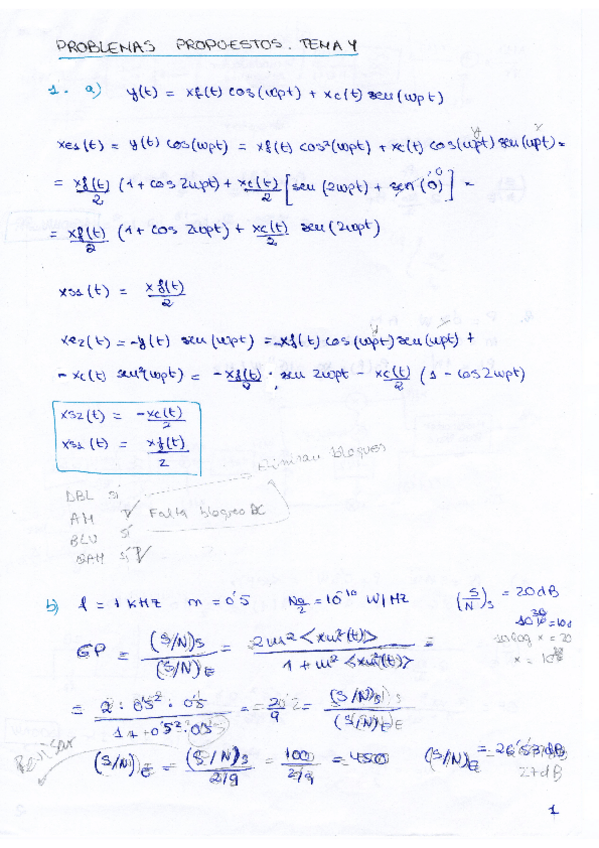 PROBLEMAS PROPUESTOS. TEMA 4
1. a) y(t) = xf(t) cos(wpt) + xc(t) sen(wpt)
xe1(t) = y(t) cos(wpt) = xf(t) cos²(wpt) + xc(t) cos(wpt) sen(wpt) =
= xf(t)/2 (1 + cos 2wpt) + xc(t)/2 [sen(2wpt) + sen(0)] =
= xf(t)/2 (1 + cos 2wpt) + xc(t)/2 sen(2wpt)
xs1(t) = xf(t)/2
xe2(t) = -y(t) sen(wpt) = -xf(t) cos(wpt) sen(wpt) +
- xc(t) sen²(wpt) = -xf(t)/2 · sen 2wpt - xc(t)/2 (1 - cos 2wpt)
xs2(t) = -xc(t)/2
xs1(t) = xf(t)/2
bloques
DBL sí
AM Falta bloqueo DC
BLU sí
QAM sí
b) f = 1 kHz m = 0'5 No/2 = 10^-10 W/Hz (S/N)s = 20 dB
10 log x = 20
GP = (S/N)s/(S/N)E = 2m²<xm²(t)>/1 + m²<xm²(t)> =
= 2 · 0'5² · 0'5/1 + 0'5² · 0'5 = 2/9 = (S/N)s/(S/N)E
Revisar
(S/N)E = (S/N)s/2/9 = 100/2/9 = 450 (S/N)E = 26'53 dB
27 dB
1